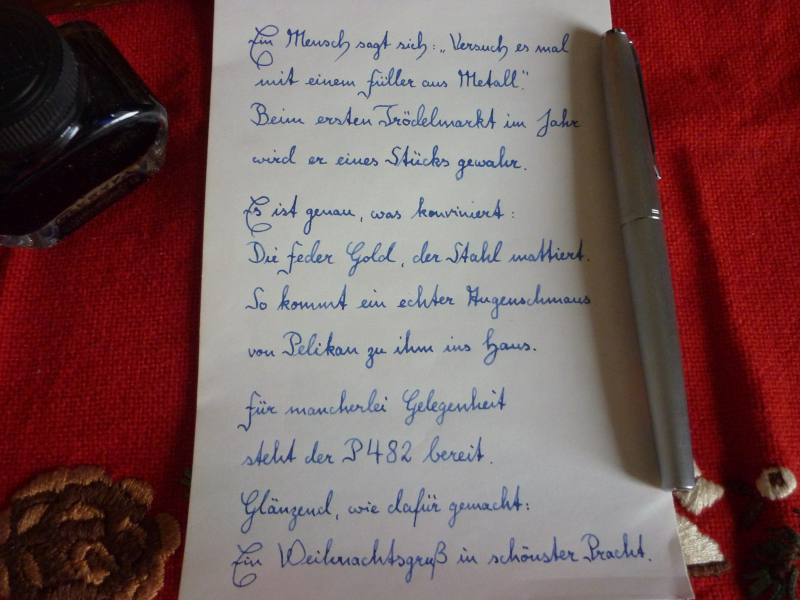 Ein Mensch sagt sich: „Versuch es mal
mit einem Füller aus Metall."
Beim ersten Trödelmarkt im Jahr
wird er eines Stücks gewahr.
Es ist genau, was konviniert:
Die Feder Gold, der Stahl mattiert.
So kommt ein echter Augenschmaus
von Pelikan zu ihm ins Haus.
Für mancherlei Gelegenheit
steht der P482 bereit.
Glänzend, wie dafür gemacht:
Ein Weihnachtsgruß in schönster Pracht.